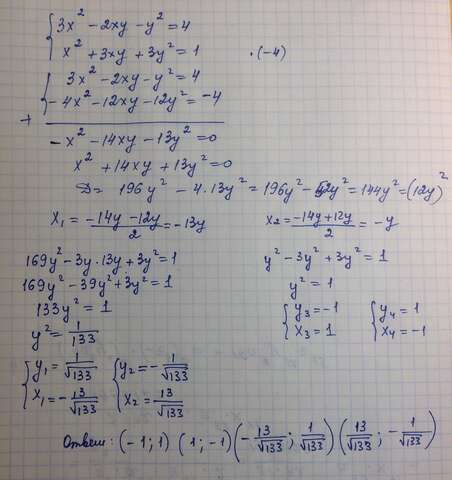 3x² - 2xy - y² = 4
x² + 3xy + 3y² = 1 · (-4)
3x² - 2xy - y² = 4
+ -4x² - 12xy - 12y² = -4
-x² - 14xy - 13y² = 0
x² + 14xy + 13y² = 0
D = 196y² - 4·13y² = 196y² - 52y² = 144y² = (12y)²
x₁ = (-14y - 12y)/2 = -13y x₂ = (-14y + 12y)/2 = -y
169y² - 3y·13y + 3y² = 1 y² - 3y² + 3y² = 1
169y² - 39y² + 3y² = 1 y² = 1
133y² = 1 { y₃ = -1 { y₄ = 1
y² = 1/133 x₃ = 1 x₄ = -1
{ y₁ = 1/√133 { y₂ = -1/√133
x₁ = -13/√133 x₂ = 13/√133
Ответ: (-1; 1) (1; -1) (-13/√133; 1/√133) (13/√133; -1/√133)